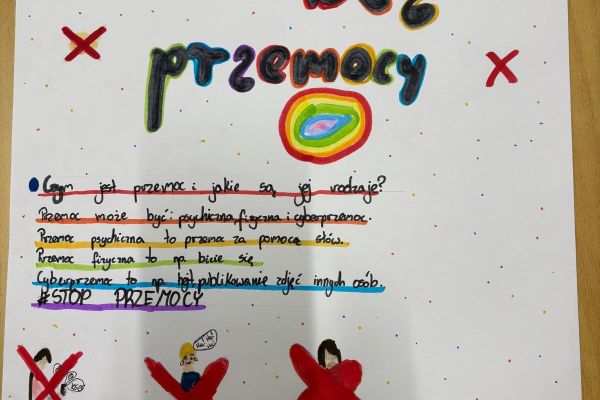 przemocy
Czym jest przemoc i jakie są jej rodzaje?
Przemoc może być: psychiczna, fizyczna i cyberprzemoc.
Przemoc psychiczna to przemoc za pomocą słów.
Przemoc fizyczna to np. bicie się
Cyberprzemoc to np. publikowanie zdjęć innych osób.
#STOP PRZEMOCY